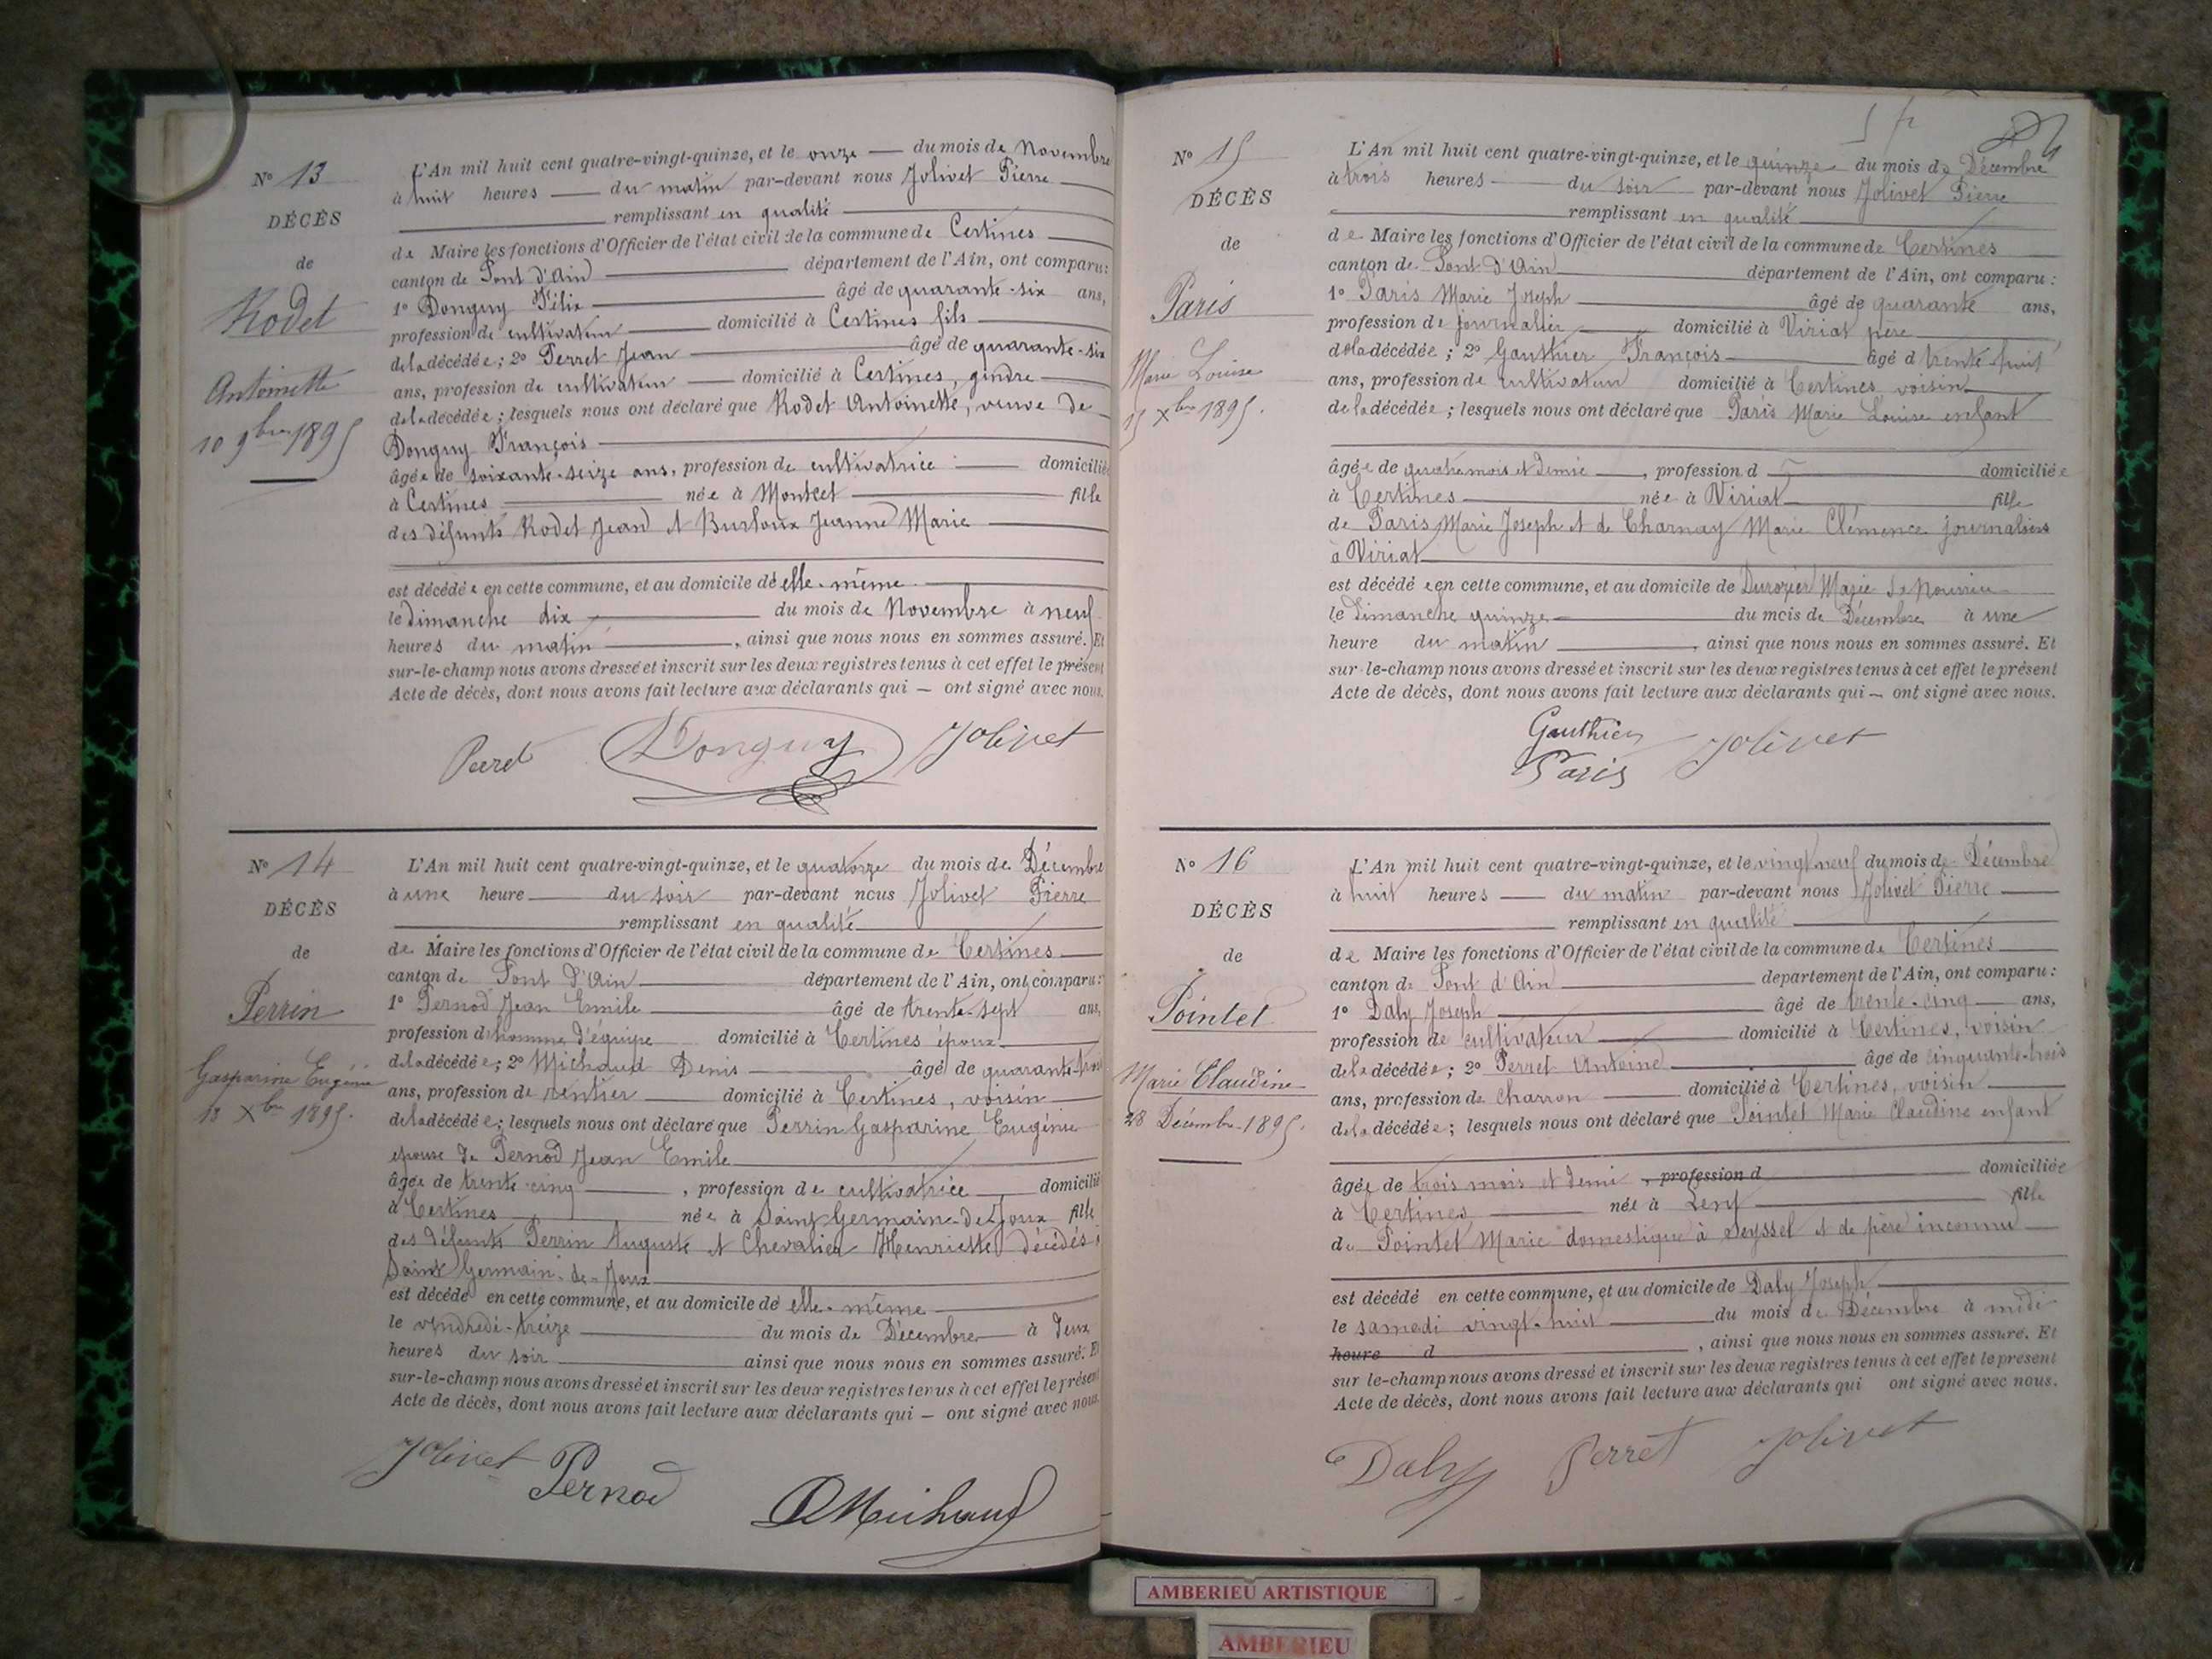 N° 13
DÉCÈS
de
Rodet
Antoinette
10 9bre 1895
L'An mil huit cent quatre-vingt-quinze, et le onze du mois de Novembre
à huit heures du matin par-devant nous Jolivet Pierre
remplissant en qualité
de Maire les fonctions d'Officier de l'état civil de la commune de Certines
canton de Pont d'Ain département de l'Ain, ont comparu:
1° Donguy Félix âgé de quarante-six ans,
profession de cultivateur domicilié à Certines fils
de la décédée; 2° Perret Jean âgé de quarante-six
ans, profession de cultivateur domicilié à Certines, gendre
de la décédée; lesquels nous ont déclaré que Rodet Antoinette, veuve de
Donguy François
âgée de soixante-seize ans, profession de cultivatrice domicilié
à Certines née à Montcet fille
des défunts Rodet Jean et Jeanne Marie
est décédée en cette commune, et au domicile de elle-même
le dimanche dix du mois de Novembre à neuf
heures du matin, ainsi que nous nous en sommes assuré. Et
sur-le-champ nous avons dressé et inscrit sur les deux registres tenus à cet effet le présent
Acte de décès, dont nous avons fait lecture aux déclarants qui — ont signé avec nous.
Donguy Jolivet
N° 14
DÉCÈS
de
Perrin
Gasparine Eugénie
13 Xbre 1895.
L'An mil huit cent quatre-vingt-quinze, et le quatorze du mois de Décembre
à une heure du soir par-devant nous Jolivet Pierre
remplissant en qualité
de Maire les fonctions d'Officier de l'état civil de la commune de Certines
canton de Pont d'Ain département de l'Ain, ont comparu:
1° Pernod Jean Emile âgé de trente-sept ans,
profession d'homme d'équipe domicilié à Certines époux
de la décédée; 2° Michaud Denis âgé de quarante-trois
ans, profession de rentier domicilié à Certines, voisin
de la décédée; lesquels nous ont déclaré que Perrin Gasparine Eugénie
épouse de Pernod Jean Emile
âgée de trente cinq, profession de cultivatrice domicilié
à Certines née à Saint-Germain-de-Joux fille
des défunts Perrin Auguste et Chevalier Henriette décédés à
Saint Germain-de-Joux
est décédé en cette commune, et au domicile de elle-même
le vendredi-treize du mois de Décembre à deux
heures du soir ainsi que nous nous en sommes assuré. Et
sur-le-champ nous avons dressé et inscrit sur les deux registres tenus à cet effet le présent
Acte de décès, dont nous avons fait lecture aux déclarants qui — ont signé avec nous.
Jolivet Pernod DMichaud
N° 15
DÉCÈS
de
Paris
Marie Louise
15 Xbre 1895.
L'An mil huit cent quatre-vingt-quinze, et le quinze du mois de Décembre
à trois heures du soir par-devant nous Jolivet Pierre
remplissant en qualité
de Maire les fonctions d'Officier de l'état civil de la commune de Certines
canton de Pont d'Ain département de l'Ain, ont comparu:
1° Paris Marie Joseph âgé de quarante ans,
profession de journalier domicilié à Viriat père
de la décédée; 2° Gauthier François âgé d trente-huit
ans, profession de cultivateur domicilié à Certines voisin
de la décédée; lesquels nous ont déclaré que Paris Marie Louise enfant
âgée de quatre mois et demie, profession d domiciliée
à Certines née à Viriat fille
de Paris Marie Joseph et de Charnay Marie Clémence journaliers
à Viriat
est décédée en cette commune, et au domicile de Durozier Marie
le dimanche quinze du mois de Décembre à une
heure du matin, ainsi que nous nous en sommes assuré. Et
sur-le-champ nous avons dressé et inscrit sur les deux registres tenus à cet effet le présent
Acte de décès, dont nous avons fait lecture aux déclarants qui — ont signé avec nous.
Gauthier Jolivet
Paris
N° 16
DÉCÈS
de
Pointet
Marie Claudine
28 Décembre 1895.
L'An mil huit cent quatre-vingt-quinze, et le vingt neuf du mois de Décembre
à huit heures du matin par-devant nous Jolivet Pierre
remplissant en qualité
de Maire les fonctions d'Officier de l'état civil de la commune de Certines
canton de Pont d'Ain département de l'Ain, ont comparu:
1° Daly Joseph âgé de trente-cinq ans,
profession de cultivateur domicilié à Certines, voisin
de la décédée; 2° Perret Antoine âgé de cinquante-trois
ans, profession de Charron domicilié à Certines, voisin
de la décédée; lesquels nous ont déclaré que Pointet Marie Claudine enfant
âgée de trois mois et demi, profession d domiciliée
à Certines née à Lent fille
de Pointet Marie domestique à Seyssel et de père inconnu
est décédé en cette commune, et au domicile de Daly Joseph
le samedi vingt-huit du mois de Décembre à midi
heure d, ainsi que nous nous en sommes assuré. Et
sur le-champ nous avons dressé et inscrit sur les deux registres tenus à cet effet le présent
Acte de décès, dont nous avons fait lecture aux déclarants qui ont signé avec nous.
Daly Perret Jolivet
AMBERIEU ARTISTIQUE
AMBERIEU